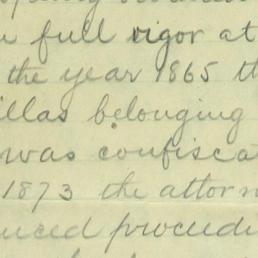 full vigor at
the year 1865 th
illas belonging
was confisca
1873 the attor
uced proceedi